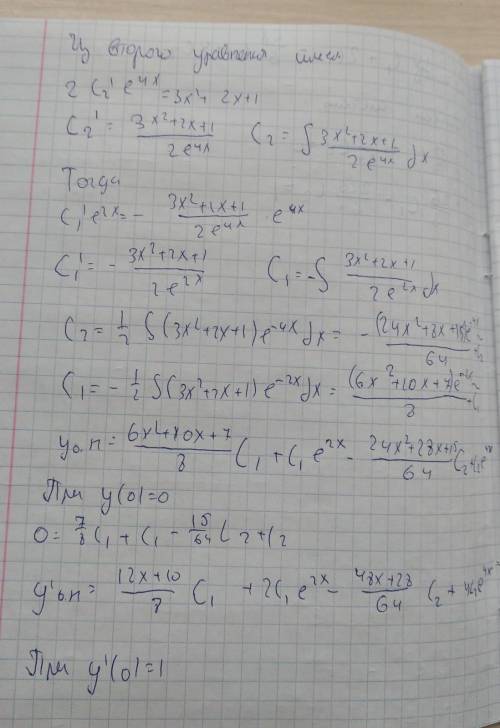 Из второго уравнения имеем
2 C₂' e^{4x} = 3x²+ 2x+1
C₂' = \frac{3x²+2x+1}{2e^{4x}}    C₂ = ∫ \frac{3x²+2x+1}{2e^{4x}} dx
Тогда
C₁' e^{2x} = - \frac{3x²+2x+1}{2e^{4x}} e^{4x}
C₁' = - \frac{3x²+2x+1}{2e^{2x}}    C₁ = -∫ \frac{3x²+2x+1}{2e^{2x}} dx
C₂ = \frac{1}{2} ∫(3x²+2x+1) e^{-4x} dx =
C₁ = -\frac{1}{2} ∫(3x²+2x+1) e^{-2x} dx =
yо.н = \frac{6x²+10x+7}{8} C₁ + C₁ e^{2x} - \frac{24x²+28x+15}{64} C₂
При y(0)=0
0 = \frac{7}{8} C₁ + C₁ - \frac{15}{64} C₂ + C₂
y'о.н = \frac{12x+10}{8} C₁ + 2C₁e^{2x} - \frac{48x+28}{64} C₂ +
При y'(0)=1